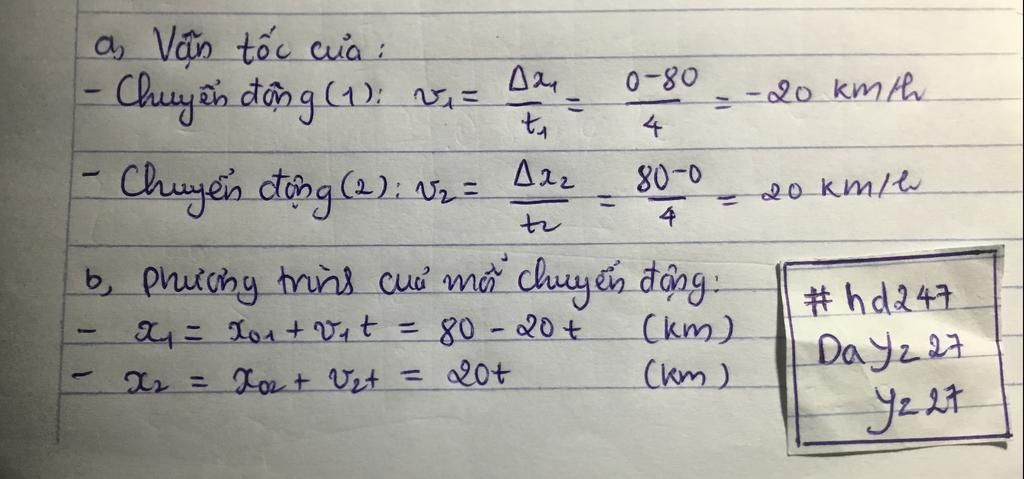 a, Vận tốc của:
- Chuyển động (1): v₁ = Δx₁/t₁ = (0-80)/4 = -20 km/h
- Chuyển động (2): v₂ = Δx₂/t₂ = (80-0)/4 = 20 km/h
b, phương trình của mỗi chuyển động:
- x₁ = x₀₁ + v₁t = 80 - 20t (km)
- x₂ = x₀₂ + v₂t = 20t (km)
#hd247
Dayz27
yz27